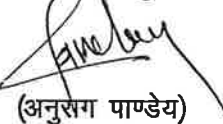 (अनुराग पाण्डेय)